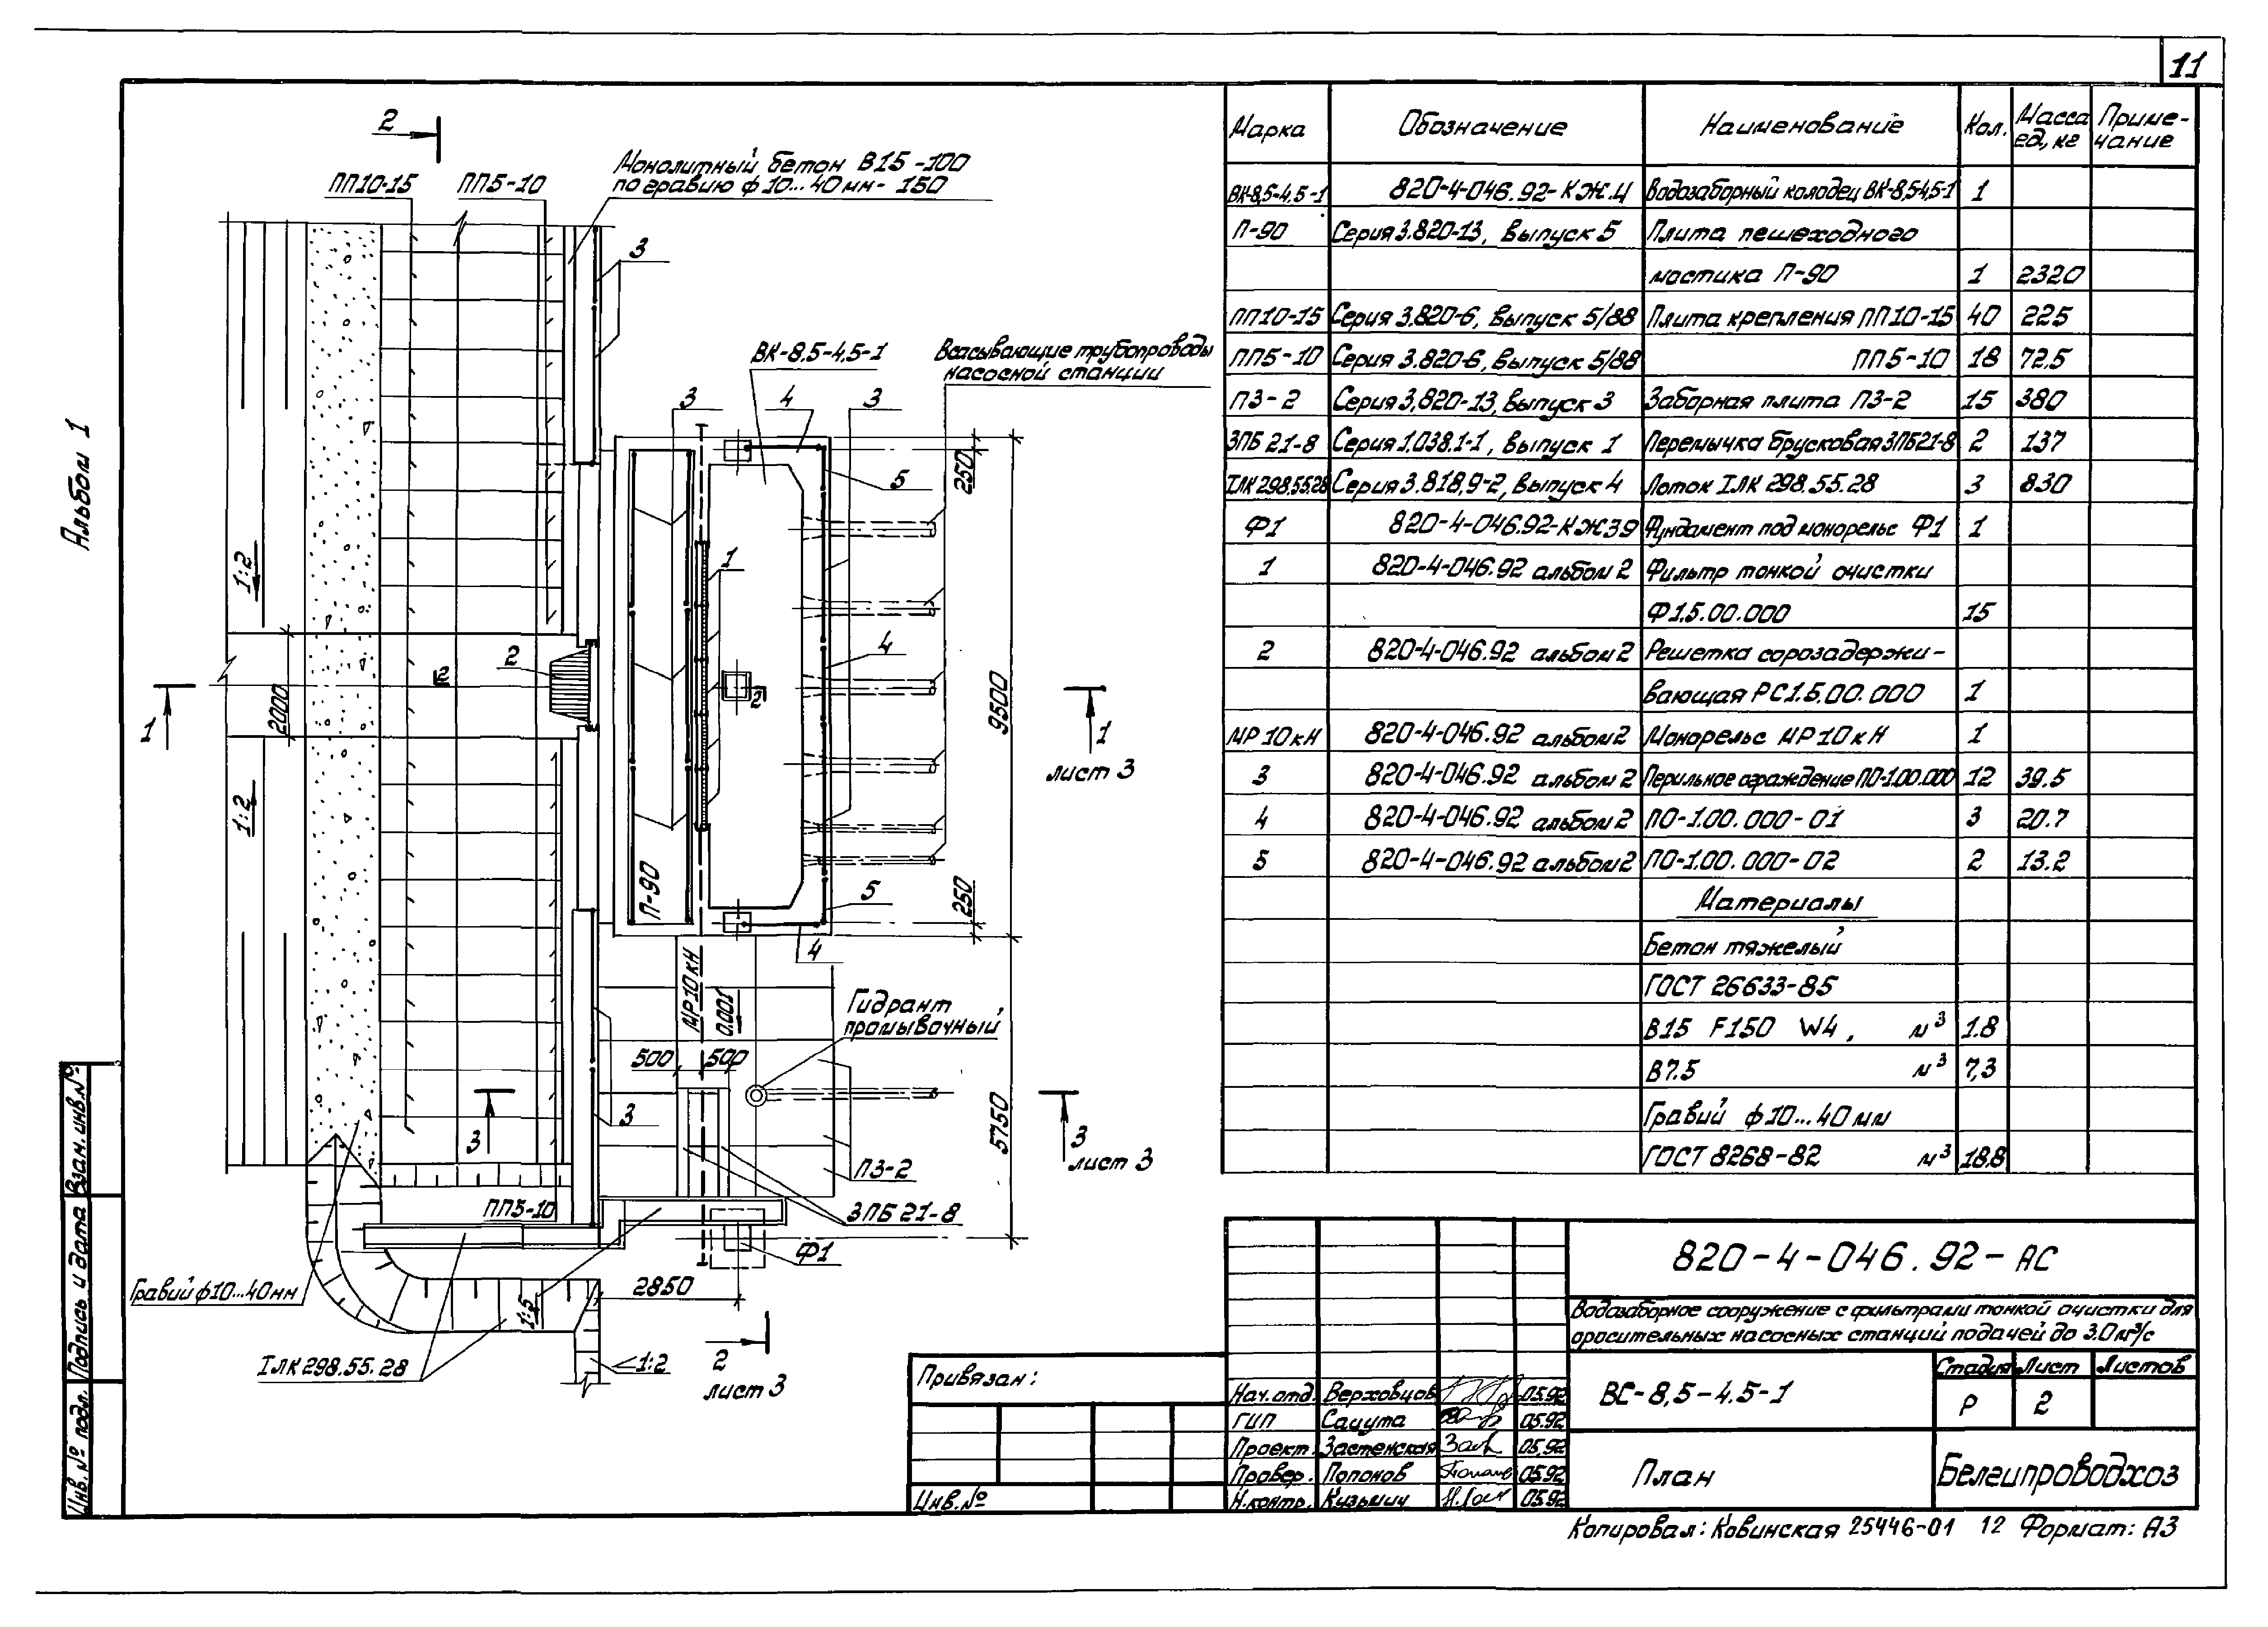 11
Альбом 1
2
ПП10-15
ПП5-10
Монолитный бетон В15-100
по гравию ф10...40мм-150
3
ВК-8,5-4,5-1
Всасывающие трубопроводы
насосной станции
3
4
3
250
5
1:2
1
2
4
2
2
2000
1
9500
1
лист 3
1:2
П-90
5
250
4
МР10кН
0.001
Гидрант
промывочный
500
500
3
3
5750
3
лист 3
П3-2
ПП5-10
3ПБ 21-8
Ф1
Гравий ф10...40мм
2850
1:5
IЛК 298.55.28
1:2
2
лист 3
Марка Обозначение Наименование Кол. Масса ед, кг Примечание
ВК-8,5-4,5-1 820-4-046.92-КЖ.И Водозаборный колодец ВК-8,5-4,5-1 1
П-90 Серия 3.820-13, выпуск 5 Плита пешеходного
мостика П-90 1 2320
ПП10-15 Серия 3.820-6, выпуск 5/88 Плита крепления ПП10-15 40 225
ПП5-10 Серия 3.820-6, выпуск 5/88 ПП5-10 18 72.5
П3-2 Серия 3.820-13, выпуск 3 Заборная плита П3-2 15 380
3ПБ 21-8 Серия 1.038.1-1, выпуск 1 Перемычка брусковая 3ПБ21-8 2 137
IЛК 298.55.28 Серия 3.818,9-2, выпуск 4 Лоток IЛК 298.55.28 3 830
Ф1 820-4-046.92-КЖ39 Фундамент под монорельс Ф1 1
1 820-4-046.92 альбом 2 Фильтр тонкой очистки
Ф1.5.00.000 15
2 820-4-046.92 альбом 2 Решетка сорозадержи-
вающая РС1.5.00.000 1
МР 10кН 820-4-046.92 альбом 2 Монорельс МР10кН 1
3 820-4-046.92 альбом 2 Перильное ограждение ПО-1.00.000 12 39.5
4 820-4-046.92 альбом 2 ПО-1.00.000-01 3 20.7
5 820-4-046.92 альбом 2 ПО-1.00.000-02 2 13.2
Материалы
Бетон тяжелый
ГОСТ 26633-85
В15 F150 W4, м³ 1.8
В7.5 м³ 7,3
Гравий ф10...40мм
ГОСТ 8268-82 м³ 18.8
820-4-046.92-АС
Водозаборное сооружение с фильтрами тонкой очистки для
оросительных насосных станций подачей до 3.0 м³/с
ВС-8,5-4.5-1
Стадия Лист Листов
Р 2
План
Белгипроводхоз
Привязан:
Инв. №
Нач.отд. Верховцов 05.92
ГИП Сацута 05.92
Проект. Застенская 05.92
Провер. Попонов 05.92
Н.контр. Кузьмич 05.92
Взам. инв. №
Подпись и дата
Инв. № подл.
Копировал: Ковинская 25446-01 12 Формат: А3